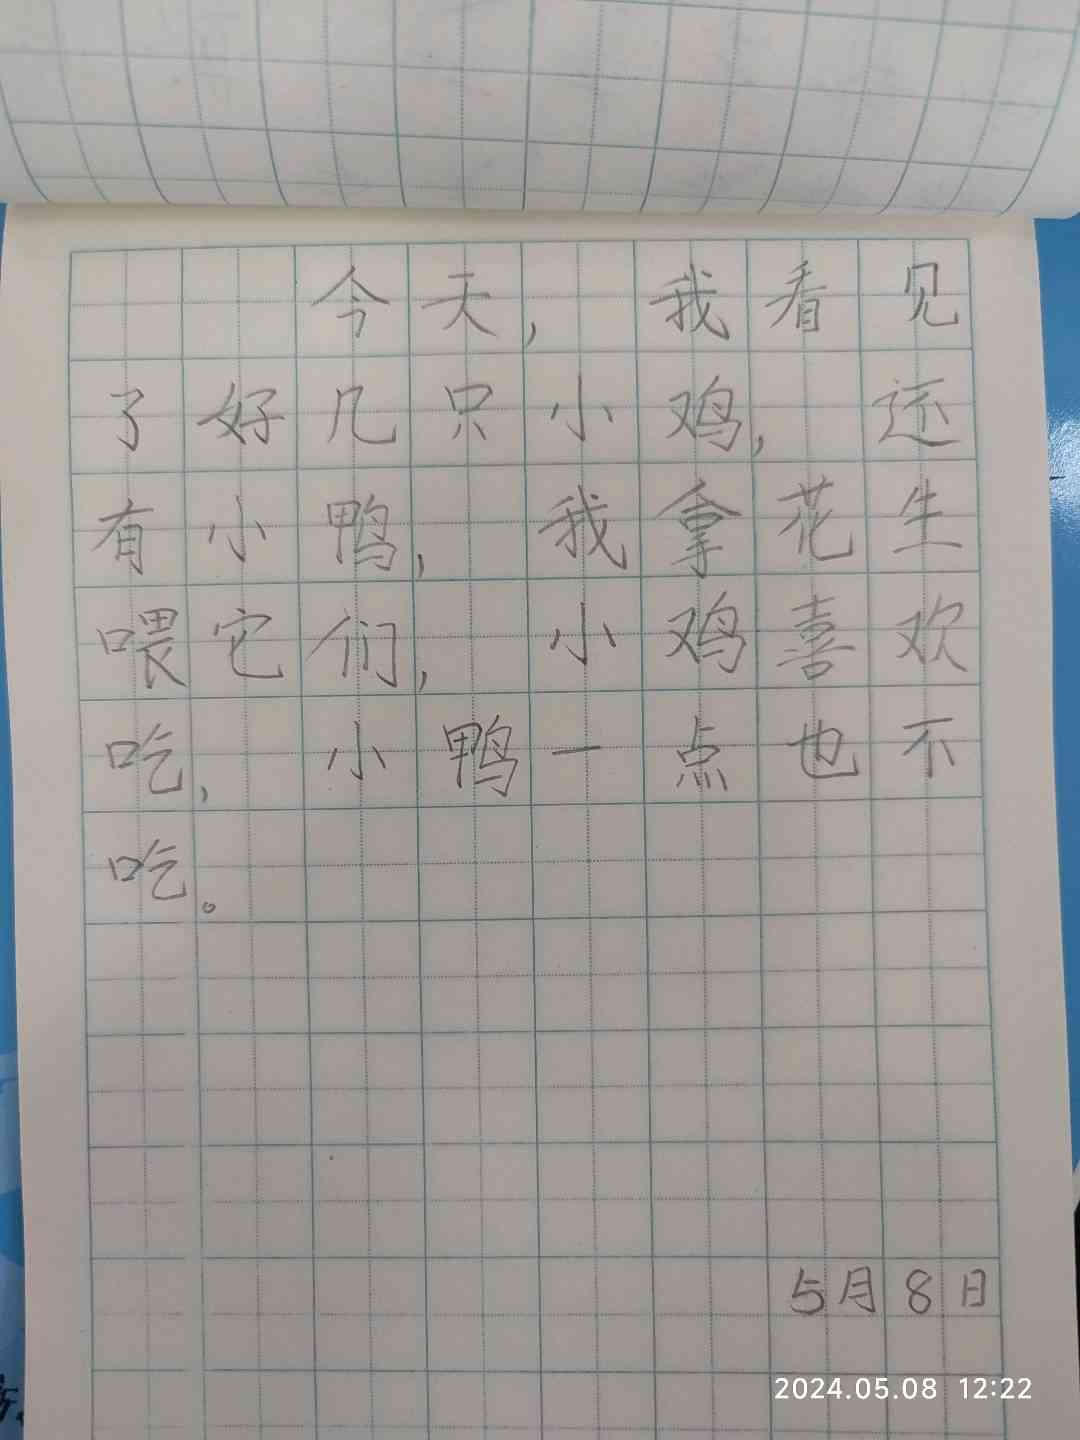 今天，我看见
了好几只小鸡，还
有小鸭，我拿花生
喂它们，小鸡喜欢
吃，小鸭一点也不
吃。
5月8日
2024.05.08 12:22